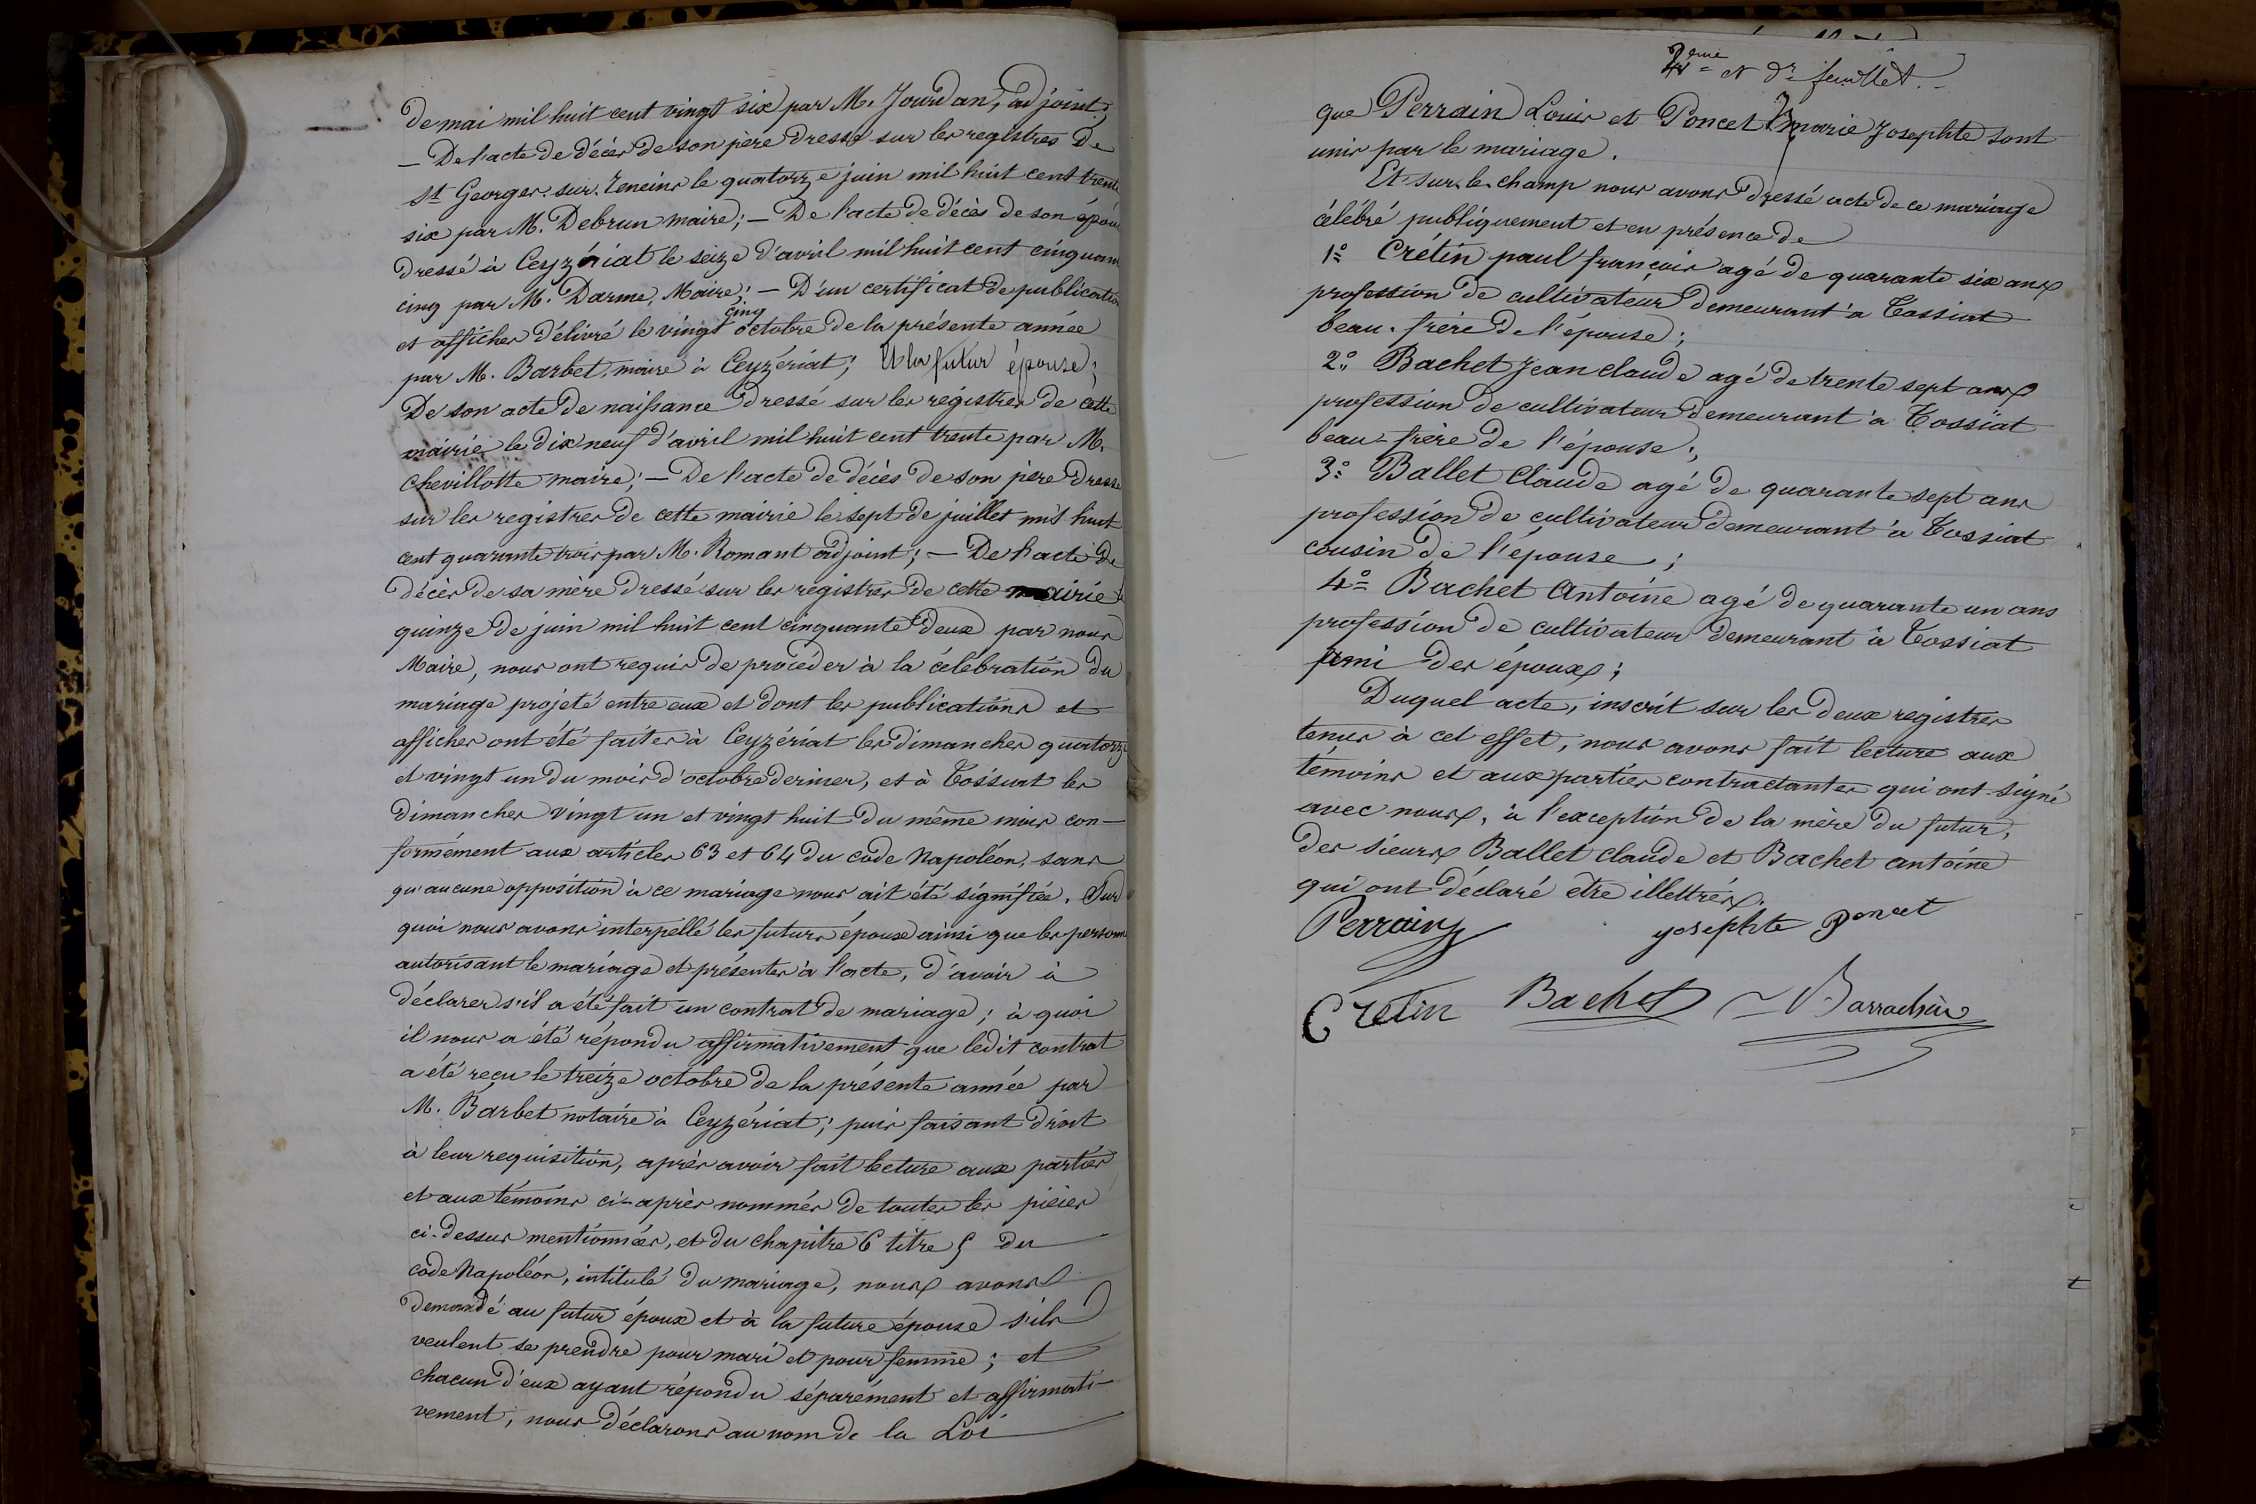 de mai mil huit cent vingt six par M. Jourdan, adjoint;
— De l'acte de décès de son père dressé sur les registres de
St Georges. sur. Reneins le quatorze juin mil huit cent trente
six par M. Debrun maire; — De l'acte de décès de son épouse
dressé à Ceyzériat le seize d'avril mil huit cent cinquante
cinq par M. Darme, Maire; — D'un certificat de publication
et affiches délivré le vingt cinq octobre de la présente année
par M. Barbet, maire à Ceyzériat; Et la futur épouse;
De son acte de naissance dressé sur les registres de cette
mairie le dix neuf d'avril mil huit cent trente par M.
Chevillotte maire; — De l'acte de décès de son père dressé
sur les registres de cette mairie le sept de juillet mil huit
cent quarante trois par M. Romant adjoint; — De l'acte de
décès de sa mère dressé sur les registres de cette mairie le
quinze de juin mil huit cent cinquante deux par nous
Maire, nous ont requis de procéder à la célébration du
mariage projeté entre eux et dont les publications et
affiches ont été faites à Ceyzériat les dimanches quatorze
et vingt un du mois d'octobre dernier, et à Tossiat les
dimanches vingt un et vingt huit du même mois con-
formément aux articles 63 et 64 du code Napoléon, sans
qu'aucune opposition à ce mariage nous ait été signifiée. Sur
quoi nous avons interpellé les futurs époux ainsi que les personnes
autorisant le mariage et présentes à l'acte, d'avoir à
déclarer s'il a été fait un contrat de mariage; à quoi
il nous a été répondu affirmativement que ledit contrat
a été reçu le treize octobre de la présente année par
M. Barbet notaire à Ceyzériat; puis faisant droit
à leur requisition, après avoir fait lecture aux parties
et aux témoins ci-après nommés de toutes les pièces
ci-dessus mentionnées, et du chapitre 6 titre 5 du
code Napoléon, intitulé du mariage, nous avons
demandé au futur époux et à la future épouse s'ils
veulent se prendre pour mari et pour femme; et
chacun d'eux ayant répondu séparément et affirmati-
vement, nous déclarons au nom de la Loi
2eme et dr feuillet.
que Perrain Louis et Poncet marie Josephte sont
unis par le mariage.
Et sur. le. champ nous avons dressé acte de ce mariage
célébré publiquement et en présence de
1° Crétin paul françois agé de quarante six ans
profession de cultivateur demeurant à Tossiat
beau. frère de l'épouse;
2° Bachet Jean claude agé de trente sept ans
profession de cultivateur demeurant à Tossiat
beau-frère de l'épouse;
3° Ballet Claude agé de quarante sept ans
profession de cultivateur demeurant à Tossiat
cousin de l'épouse;
4° Bachet Antoine agé de quarante un ans
profession de cultivateur demeurant à Tossiat
ami des époux;
Duquel acte, inscrit sur les deux registres
tenus à cet effet, nous avons fait lecture aux
témoins et aux parties contractantes qui ont signé
avec nous, à l'exception de la mère du futur,
des sieurs Ballet claude et Bachet antoine
qui ont déclaré être illettrés.
Perrain
yosephte Poncet
Cretin Bachet